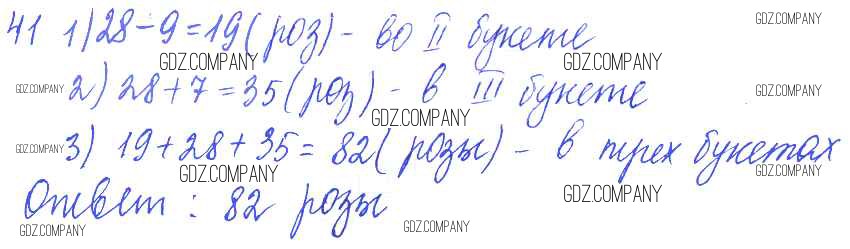 41 1) 28 - 9 = 19 (роз) - во II букете
2) 28 + 7 = 35 (роз) - в III букете
3) 19 + 28 + 35 = 82 (розы) - в трех букетах
Ответ: 82 розы
GDZ.COMPANY
GDZ.COMPANY
GDZ.COMPANY
GDZ.COMPANY
GDZ.COMPANY
GDZ.COMPANY
GDZ.COMPANY
GDZ.COMPANY
GDZ.COMPANY
GDZ.COMPANY
GDZ.COMPANY
GDZ.COMPANY
GDZ.COMPANY